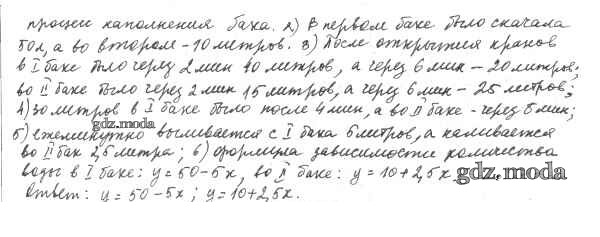 процесс наполнения бака. 2) В первом баке было сначала
50л, а во втором - 10 литров. 3) После открытия кранов
в I баке было через 2 мин 40 литров, а через 6 мин - 20 литров;
во II баке было через 2 мин 15 литров, а через 6 мин - 25 литров;
4) 30 литров в I баке было после 4 мин, а во II баке - через 8 мин;
gdz.moda
5) ежеминутно выливается с I бака 5 литров, а наливается
во II бак 2,5 литра; 6) формула зависимости количества
воды в I баке: y = 50 - 5x, во II баке: y = 10 + 2,5x
gdz.moda
Ответ: y = 50 - 5x; y = 10 + 2,5x.